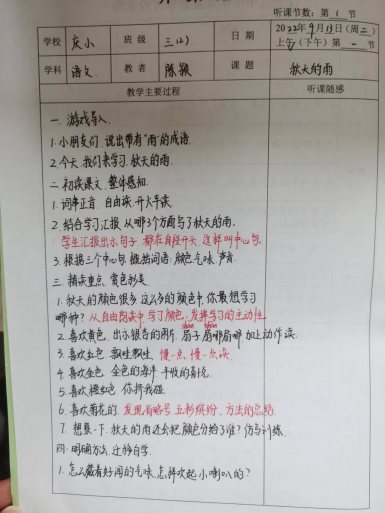 听课节数：第 1 节
学校 庆小 班级 三(2) 日期 2022年9月13日（周二）
上午（下午）第 一 节
学科 语文 教者 陈颖 课题 秋天的雨
教学主要过程 听课随感
一. 游戏导入.
1. 小朋友们, 说出带有"雨"的成语.
2. 今天, 我们来学习. 秋天的雨.
二. 初读课文, 整体感知.
1. 词串正音. 自由读. 开火车读.
2. 结合学习汇报, 从哪3个方面写了秋天的雨.
学生汇报出示句子 都在自段开头, 这样叫中心句.
3. 根据三个中心句. 概括词语: 颜色 气味. 声音.
三. 精读重点, 赏色彩美.
1. 秋天的颜色很多 这么多的颜色中, 你最想学习
哪种? 从自由阅读中学习颜色, 发挥学习的主动性.
2. 喜欢黄色. 出示银杏的图片. 扇子 扇哪扇哪 加上动作读.
shàn shān
3. 喜欢红色. 飘哇飘哇. 慢一点, 慢一点读.
4. 喜欢金色. 金色的海洋 丰收的
5. 喜欢橙红色. 你挤我碰.
6. 喜欢菊花的. 发现省略号 五彩缤纷, 方法的总结.
7. 想象一下. 秋天的雨还会把颜色分给了谁? 仿写训练.
四. 明确方法, 迁移自学.
1. 怎么藏着好闻的气味, 怎样吹起小喇叭的?